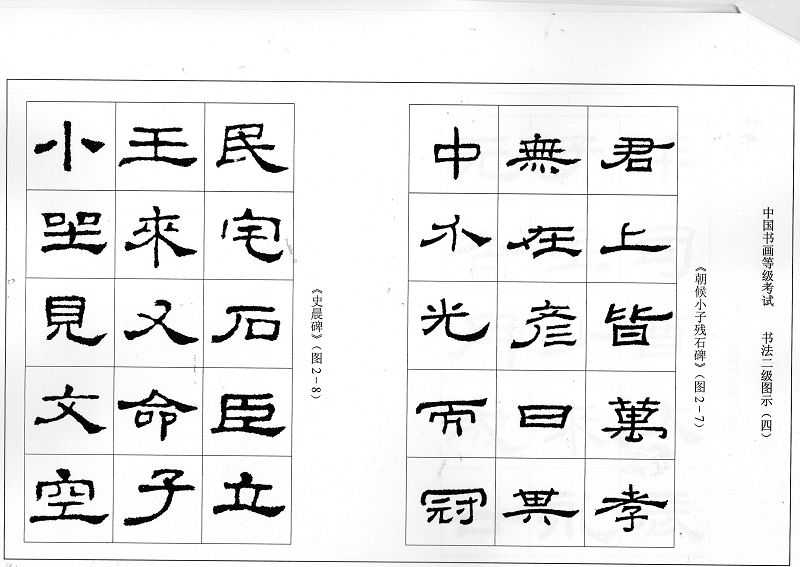 中国书画等级考试 书法二级图示（四）
《朝候小子残石碑》（图2－7）
君上皆萬孝
無在彦日其
中光而冠
《史晨碑》（图2－8）
民宅石臣立
王來又命子
小坐見文空